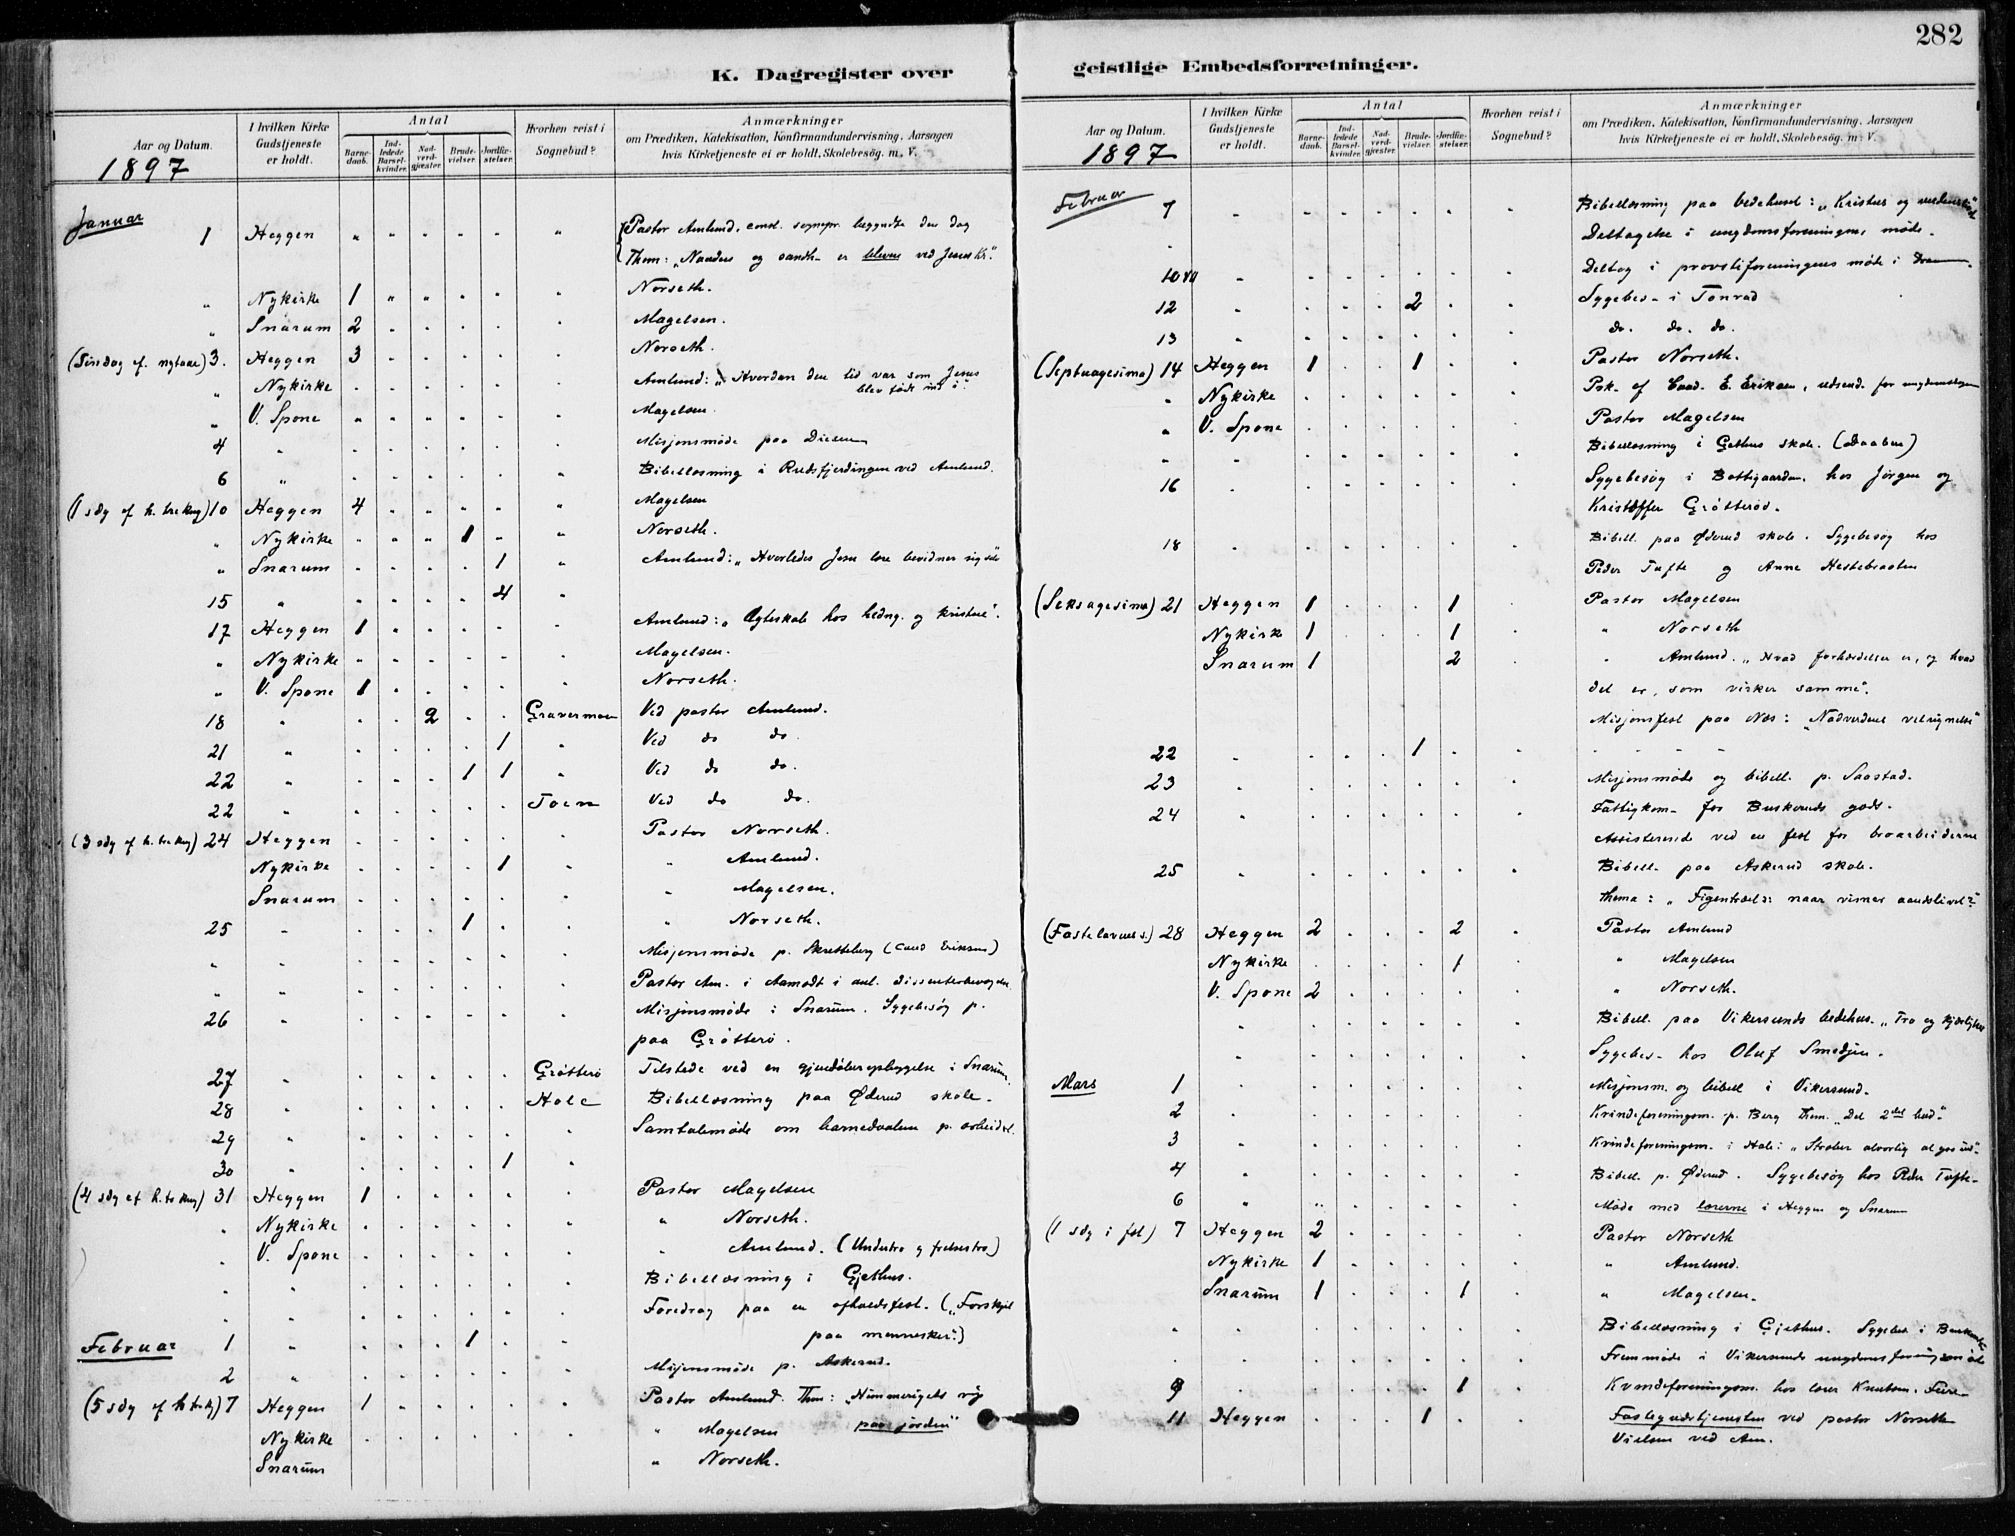 282
K. Dagregister over geistlige Embedsforretninger.
Aar og Datum.
1897
I hvilken Kirke Gudstjeneste er holdt.
Antal
Barnedaab.
Indledede Barselkvinder.
Nadverdgjæster.
Brudevielser.
Jordfæstelser.
Hvorhen reist i Sognebud?
Anmærkninger
om Prædiken, Katekisation, Konfirmandundervisning, Aarsagen
hvis Kirketjeneste ei er holdt, Skolebesög. m. V.
Januar
1 Heggen " " " " " " Pastor Amlund, const. sognepr. begyndte den dag
Them: „Naaden og sandh. er bleven ved Jesus Kr."
" Nykirke 1 Norseth.
" Snarum 2 Magelsen.
(Søndag ef. nytaar) 3. Heggen 3 Norseth.
" Nykirke Amlund: „Hvordan den tid var som Jesus
blev født ind i".
" V. Spone Magelsen.
4 Misjonsmøde paa
6 Bibellæsning i Rudsfjerdingen ved Amlund.
(1 sdg ef h. trekng) 10 Heggen 4 Magelsen
" Nykirke 1 Norseth.
" Snarum 1 Amlund: „Hvorledes Jesu lære bevidner sig
15 " 4
17 Heggen 1 Amlund: „Ægteskab hos hedng. og kristne".
" Nykirke Magelsen.
" V. Spone 1 Norseth.
18 " 2 Gravermoen Ved pastor Amlund.
21 " 1 Ved do do.
22 " 1 1 Ved do do.
22 " Toen Ved do do.
(3 sdg ef h. trekng) 24 Heggen Pastor Norseth.
Nykirke 1 " Amlund.
Snarum " Magelsen.
25 " 1 " Norseth.
" " Misjonsmøde p. Skretteberg (Cand Eriksen)
" " Pastor Am. i Aamodt i anl.
26 " Misjonsmøde i Snarum. Sygebesøg p.
paa Grøtterø.
27 " Grøtterø Tilstede ved en i Snarum.
28 " Hole Bibellæsning paa Øderud skole.
29 " Samtalemøde om barnedaaben p.
30 " 1
(4 sdg ef h. trekng) 31 Heggen 1 Pastor Magelsen
" Nykirke " Norseth.
" V. Spone " Amlund. (Undertro og frelsestro)
" " Bibellæsning i Gjethus.
" " Foredrag paa en afholdsfest. („Forskjel
paa mennesker".)
Februar 1 " 1
2 " Misjonsmøde p. Askerud.
(5 sdg ef h trekg) 7 Heggen 1 Pastor Amlund. Them: „Himmeriges rig
paa jorden"
Nykirke " Magelsen
Snarum " Norseth.
Aar og Datum.
1897
I hvilken Kirke Gudstjeneste er holdt.
Antal
Barnedaab.
Indledede Barselkvinder.
Nadverdgjæster.
Brudevielser.
Jordfæstelser.
Hvorhen reist i Sognebud?
Anmærkninger
om Prædiken, Katekisation, Konfirmandundervisning, Aarsagen
hvis Kirketjeneste ei er holdt, Skolebesög. m. V.
Februar
7 " Bibellæsning paa bedehuset: „Kristus og
" Deltagelse i ungdomsforeningens møde.
10 Deltog i provstiforeningens møde i
12 " 2 Sygebes. i Tonrud
13 " do. do. do.
(Septuagesima) 14 Heggen 1 1 Pastor Norseth.
" Nykirke Præk. af Cand. E. Eriksen, udsend. for
" V. Spone Pastor Magelsen
" " Bibellæsning i Gethus skole. (Daaben)
16 Sygebesøg i hos Jørgen og
Kristoffer Grøtterød.
18 " Bibell. paa Øderud skole. Sygebesøg hos
Peder Tufte og Anne Hestebraaten
(Seksagesima) 21 Heggen 1 1 Pastor Magelsen
Nykirk 1 1 " Norseth
Snarum 1 2 " Amlund. „Hvad forhærdelse er, og hvad
det er, som virker samme".
Misjonsfest paa Næs: „Nadverdens velsignelse"
22 " 1 " " " "
23 " Misjonsmøde og bibell. p. Saastad.
24 " Fattigkom. for Buskeruds gods.
Assisterende ved en fest for broarbeiderne
25 " Bibell. paa Askerud skole.
Thema: „Figentræet: naar visner aandslivet?"
(Fastelavns s.) 28 Heggen 2 2 Pastor Amlund
Nykirke 1 " Magelsen
V. Spone 2 " Norseth.
" Bibell. paa Vikersunds bedehus. „Tro og kjærlighed
" Sygebes. hos Oluf Smedjen.
Mars 1 " Misjonsm. og bibell i Vikersund.
2 " Kvindeforeningsm. p. Berg Them. „Det 2det bud".
3 " Kvindeforeningsm. i Hole: „Stræber alvorlig at gaa ind".
4 " Bibell. p. Øderud. Sygebesøg hos Peder Tufte.
6 " Møde med lærerne i Heggen og Snarum
(1 sdg i fst) 7 Heggen 2 Pastor Norseth
Nykirke 1 " Amlund.
Snarum 1 1 " Magelsen.
" Bibellæsning i Gjethus. Sygebes. i
Fremmøde i Vikersunds ungdomsforening
9 1 Kvindeforeningsm. hos lærer Knutsen. Fure
11 Heggen 1 Fastegudstjenesten ved pastor Norseth
Vielsen ved Am.